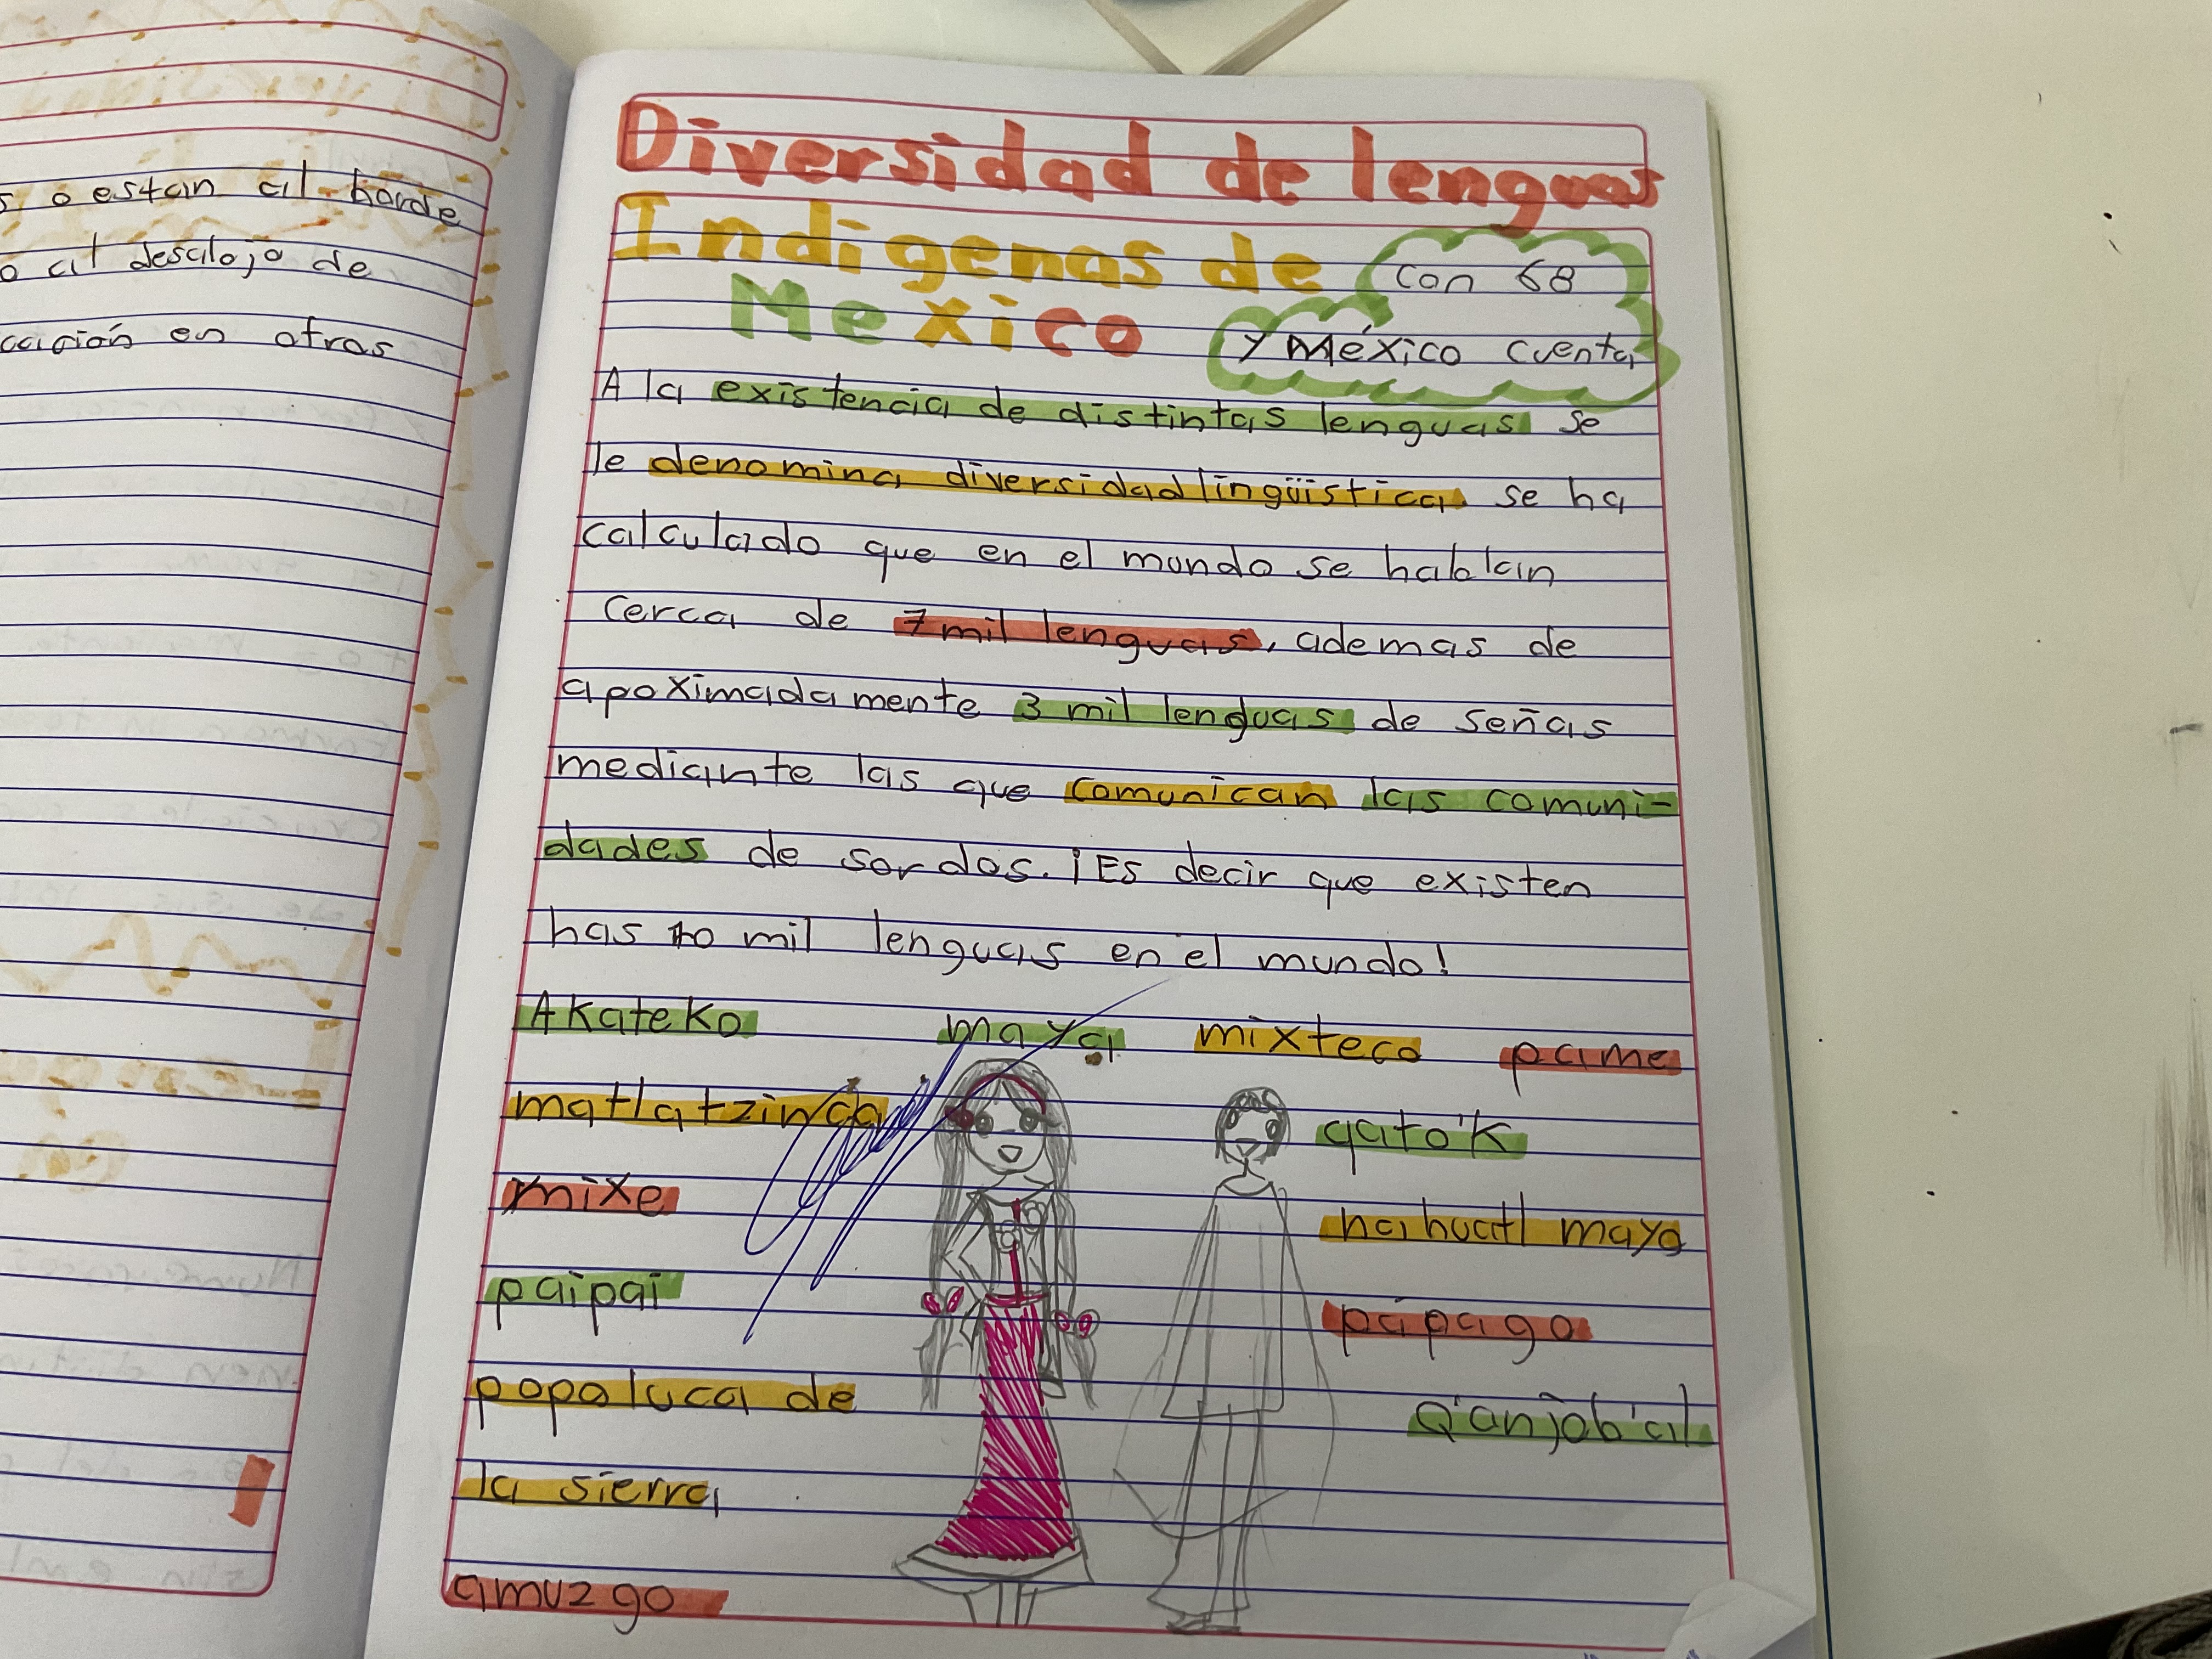 s o estan al borde
o al desalojo de
cación en otras
Diversidad de lenguas
Indigenas de
Mexico
con 68
y México cuenta
A la existencia de distintas lenguas se
le denomina diversidad lingüistica se ha
calculado que en el mundo se hablan
cerca de 7 mil lenguas, ademas de
apoximadamente 3 mil lenguas de señas
mediante las que comunican las comuni-
dades de sordos. ¡Es decir que existen
has 10 mil lenguas en el mundo!
Akateko maya mixteco pame
matlatzinca qato'k
mixe nahuatl mayo
paipai pápago
popoluca de Q'anjob'al
la sierra
amuzgo